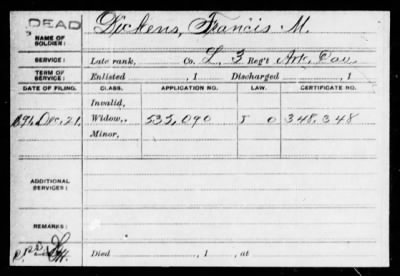 DEAD
NAME OF SOLDIER: Dickens, Francis M.
SERVICE: Late rank, Co. L, 3 Reg't Ark. Cav.
TERM OF SERVICE: Enlisted , 1 Discharged , 1
DATE OF FILING. CLASS. APPLICATION NO. LAW. CERTIFICATE NO.
Invalid,
1896 Dec. 21. Widow, 535,090 348,348
Minor,
ADDITIONAL SERVICES:
REMARKS:
Died , 1 , at